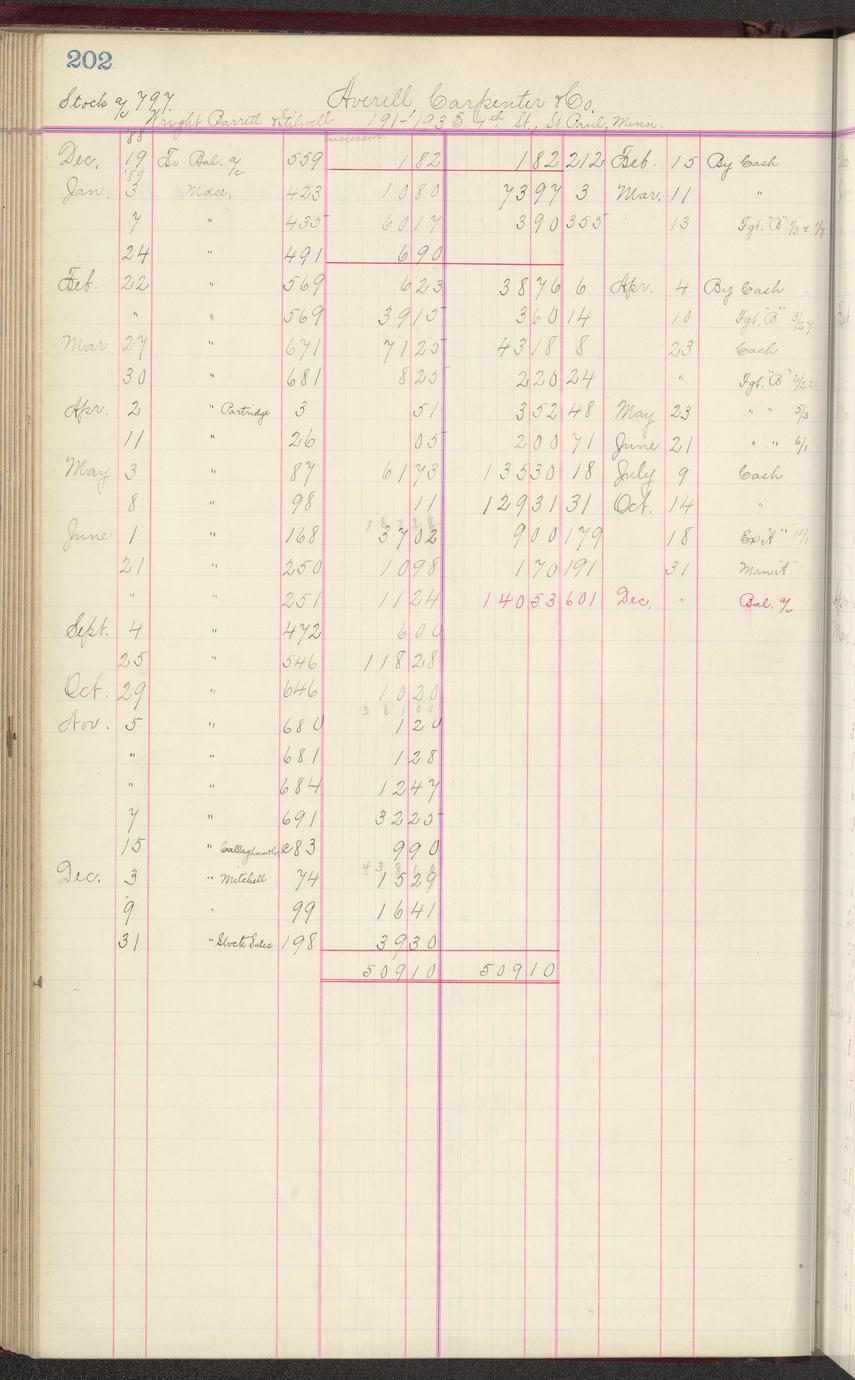 202
Stock a/c 797. Averill, Carpenter & Co.
Wright Barrett & Stilwell 191-193 E. 4th St., St Paul, Minn.
successors.
'88
Dec. 19 To Bal. a/c 559 1 82 1 82 212 Feb. 15 By Cash
'89
Jan. 3 Mdse. 423 10 80 73 97 3 Mar. 11 "
7 " 435 60 17 3 90 355 13 Fgt. "B" 1/3 & 1/7
24 " 491 6 90
Feb. 22 " 569 6 23 38 76 6 Apr. 4 By Cash
" " 569 39 15 3 60 14 10 Fgt. "B" 3/27
Mar 27 " 671 71 25 43 18 8 23 Cash
30 " 681 8 25 2 20 24 " Fgt. "B" 2/22
Apr. 2 " Partridge 3 51 3 52 48 May 23 " " 5/3
11 " 26 05 2 00 71 June 21 " " 6/1
May 3 " 87 61 73 135 30 18 July 9 Cash
8 " 98 11 129 31 31 Oct. 14 "
June 1 " 168 37 02 9 00 179 18 Ex "A" 10/1
21 " 250 10 98 1 70 191 31 Man "A"
" " 251 11 24 140 53 601 Dec. " Bal. a/c
Sept. 4 " 472 6 00
25 " 546 118 28
Oct. 29 " 646 10 20
Nov. 5 " 680 1 20
" " 681 1 28
" " 684 12 47
7 " 691 32 25
15 " Callaghan & Co. C83 9 90
Dec. 3 " Mitchell 74 15 29
9 " 99 16 41
31 " Stock Sales 198 39 30
509 10 509 10